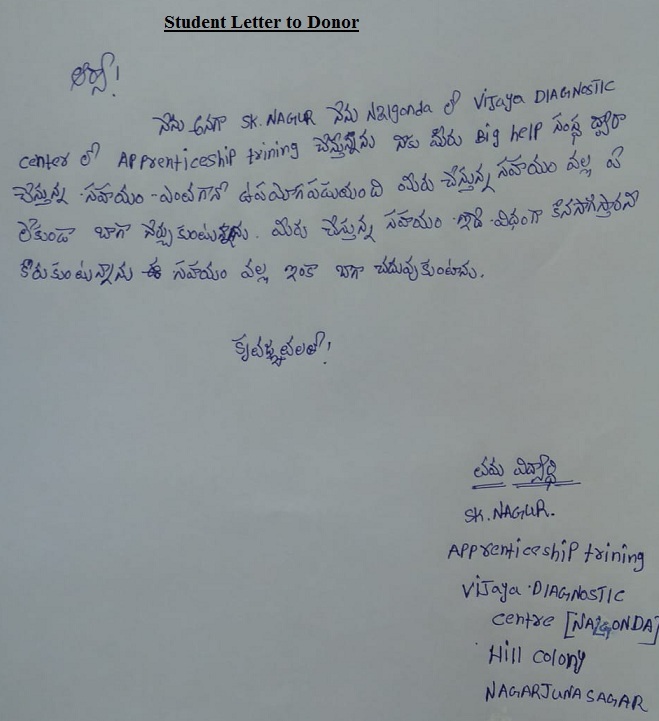 Student Letter to Donor
ఆర్యా!
నేను అనగా SK. NAGUR నేను Nalgonda లో Vijaya DIAGNOSTIC
center లో Apprenticeship trining చేస్తున్నాను నాకు మీరు Big help సంస్థ ద్వారా
చేస్తున్న సహయం ఎంతగానో ఉపయోగపడుతుంది మీరు చేస్తున్న సహయం వల్ల ఏ
లేకుండా బాగా నేర్చుకుంటున్నాను. మీరు చేస్తున్న సహయం ఇదే విధంగా కొనసాగిస్తారని
కోరుకుంటున్నాను ఈ సహయం వల్ల ఇంకా బాగా చదువుకుంటాను.
కృతజ్ఞతలతో!
తమ విద్యార్థి
SK. NAGUR.
Apprenticeship trining
Vijaya DIAGNOSTIC
centre [NALGONDA]
Hill colony
NAGARJUNA SAGAR